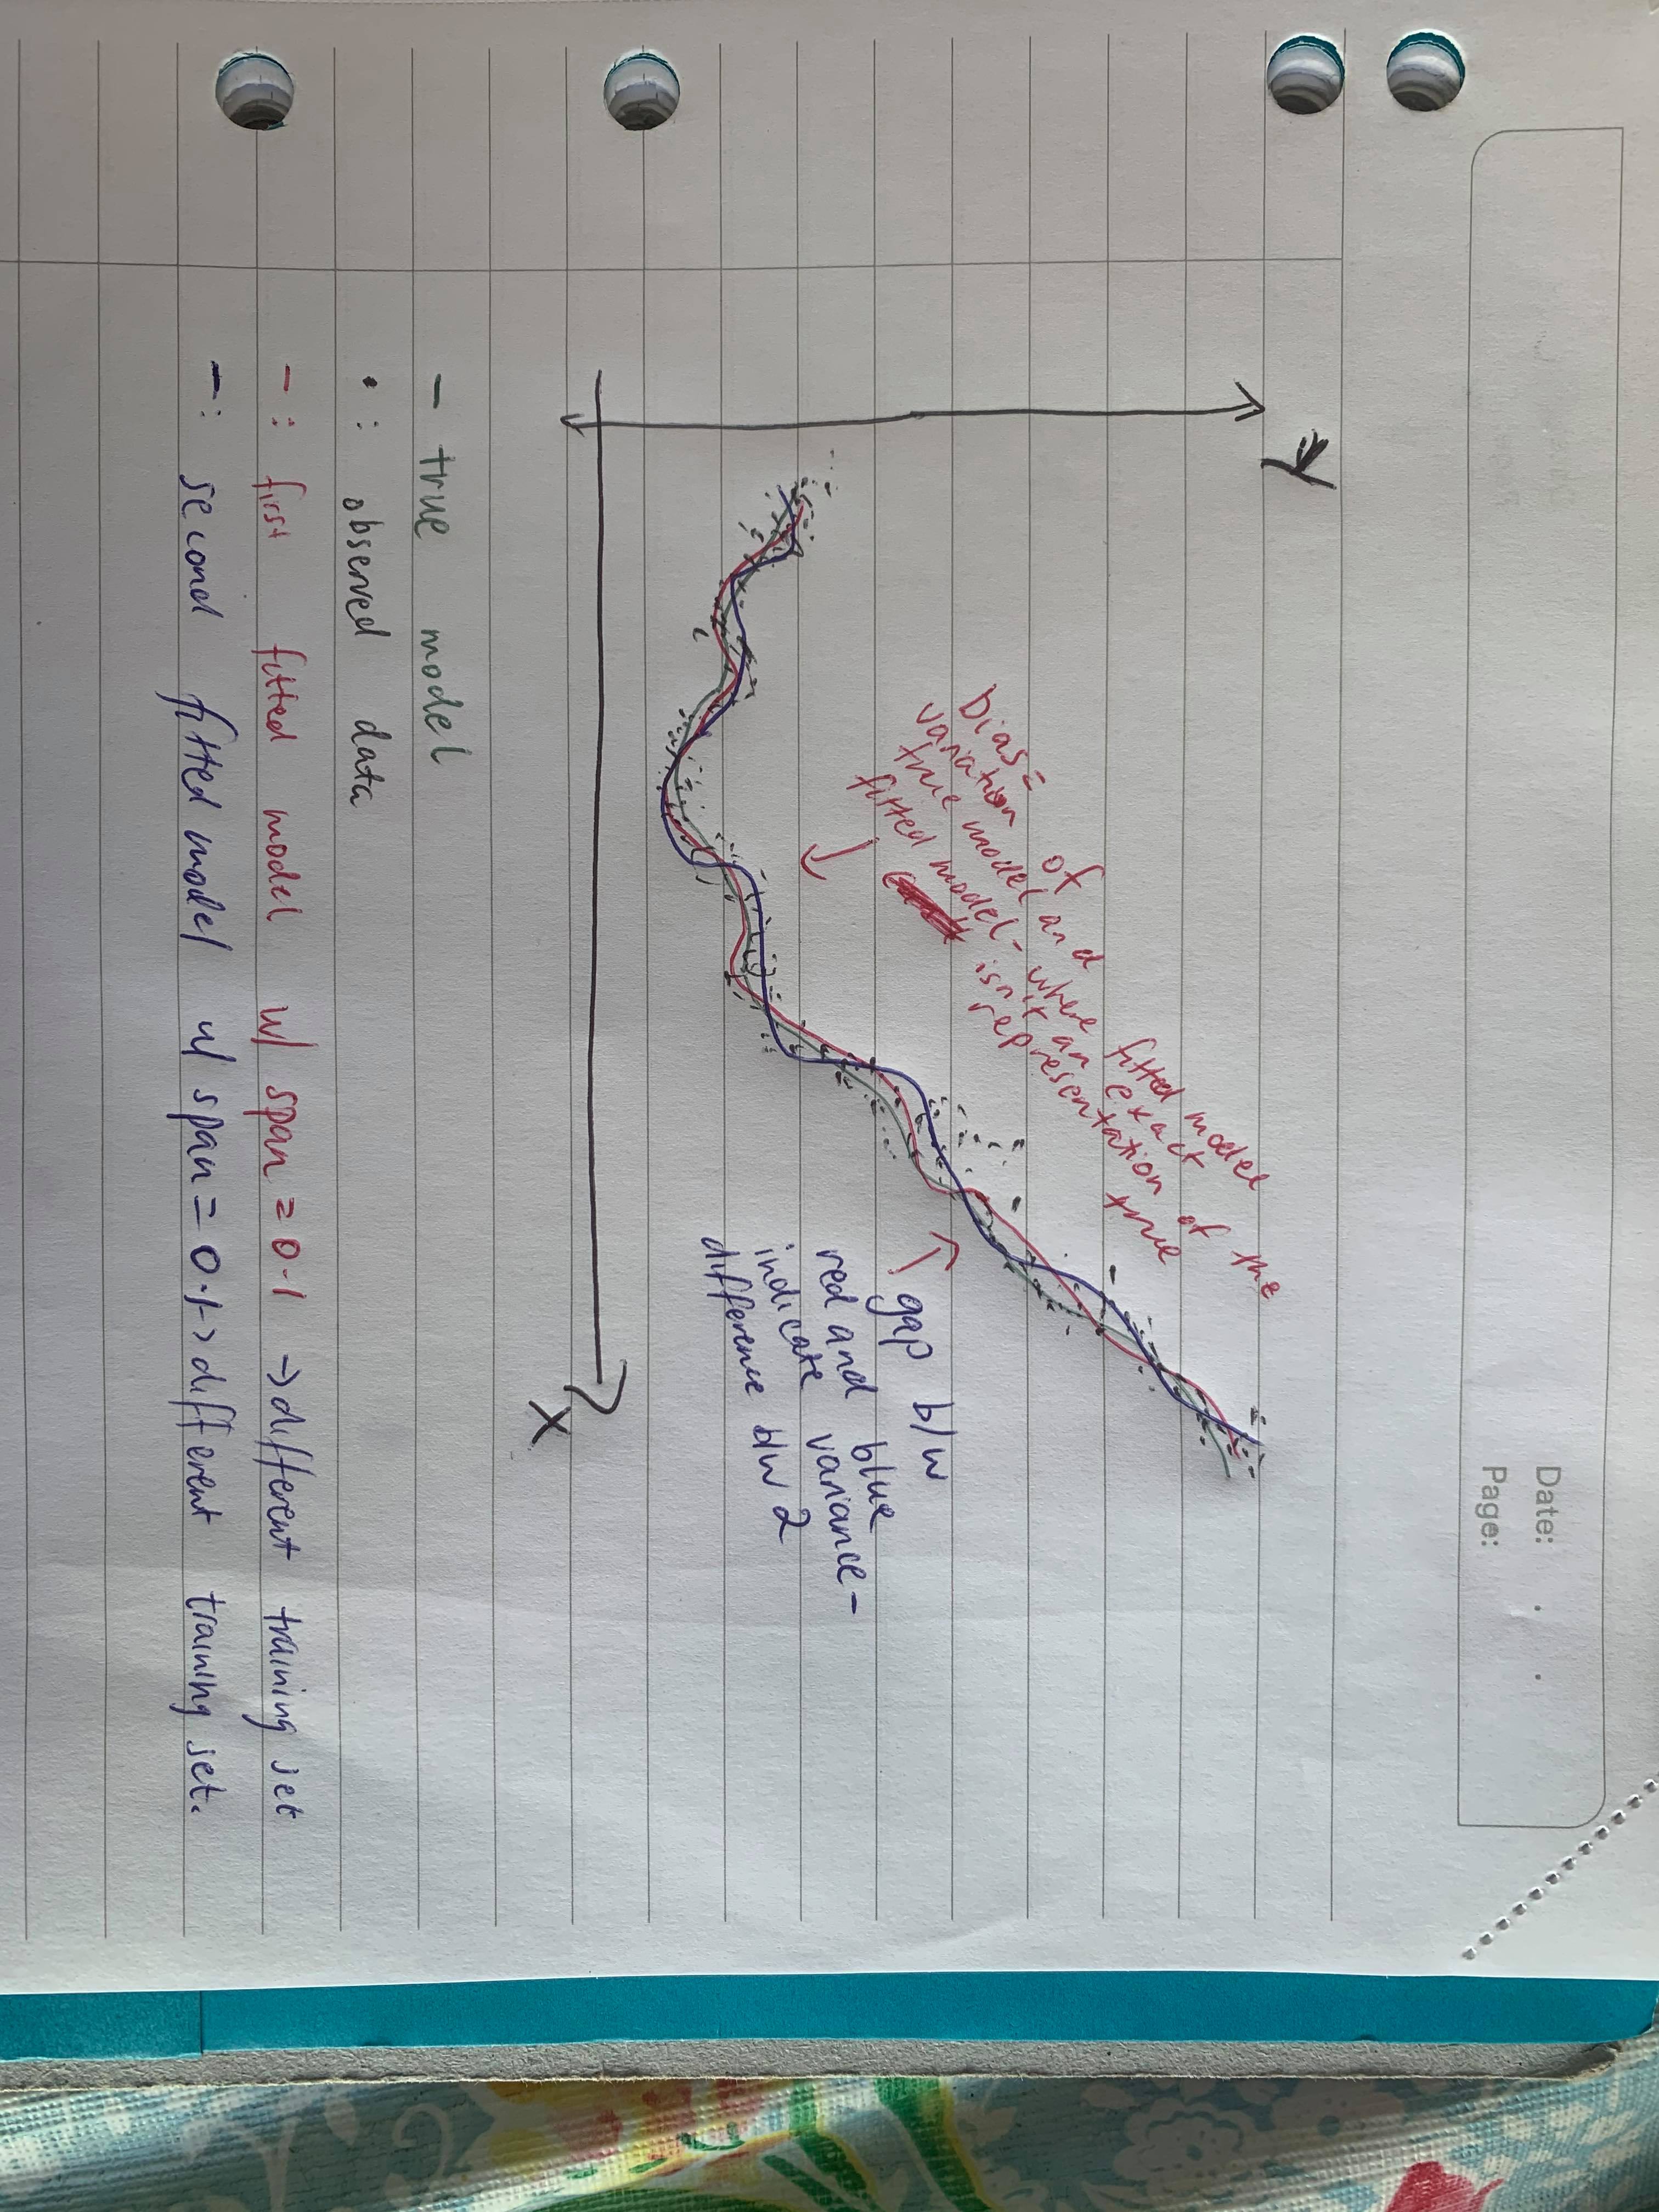 Date:
Page:
Y
bias =
variation of
true model and
fitted model - where fitted model
isn't an exact
representation of the
true
gap b/w
red and blue
indicate variance -
difference b/w 2
X
- true model
• : observed data
- : first fitted model w/ span = 0.1 → different training set
- : second fitted model w/ span = 0.1 → different training set.